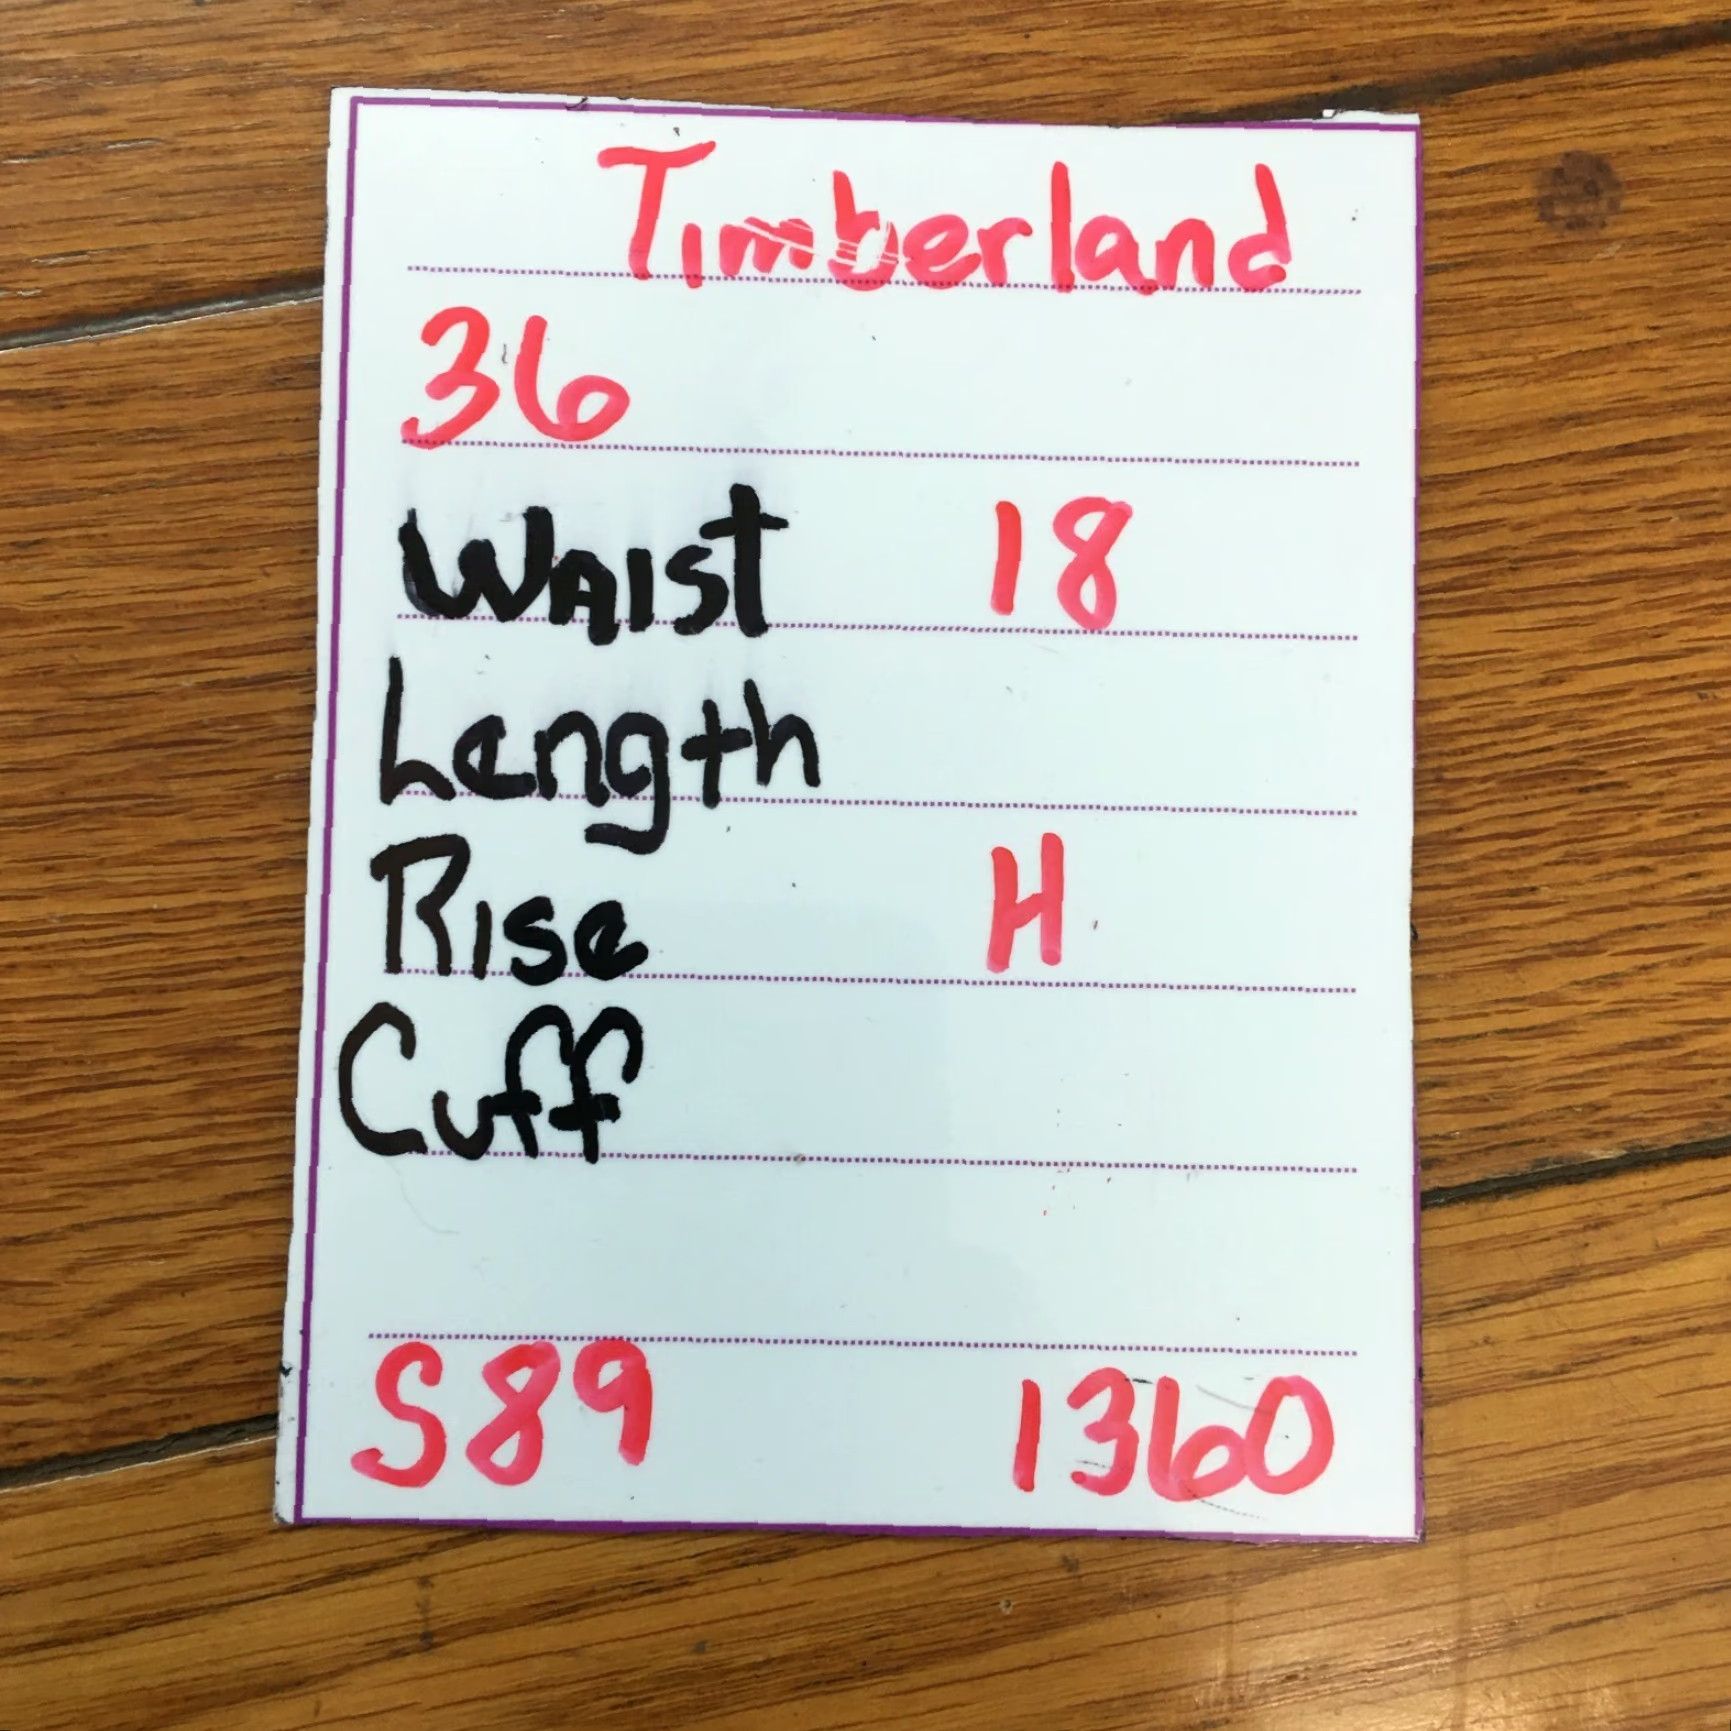 Timberland
36
Waist 18
Length
Rise H
Cuff
S89 1360